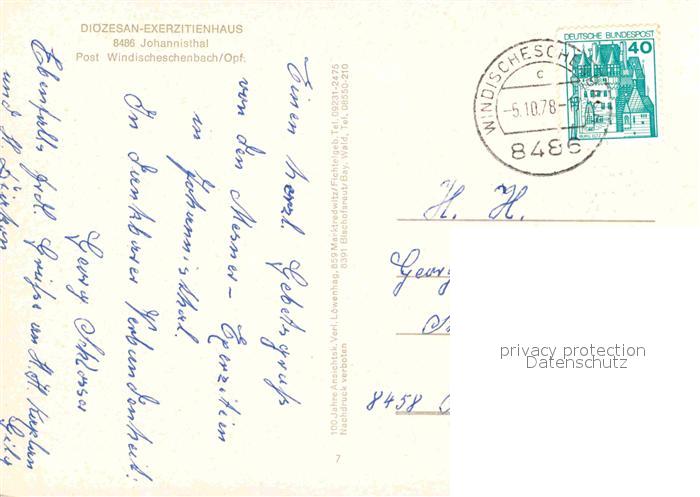 DIÖZESAN-EXERZITIENHAUS
8486 Johannisthal
Post Windischeschenbach/Opf.
Einen herzl. Gebetsgruß
von den Mesner-Exerzitien
in Johannisthal.
In dankbarer Verbundenheit!
Georg Schlosser
Ebenfalls frdl. Grüße an H.H. Kaplan
und H. Diakon
100 Jahre Ansichtsk. Verl. Löwenhag, 859 Marktredwitz/Fichtelgeb. Tel. 09231-2475
8391 Bischofsreut/Bay. Wald, Tel. 08550-210
Nachdruck verboten
7
DEUTSCHE BUNDESPOST
40
WINDISCHESCH
c
-5.10.78-
8486
H. H.
Georg
8458
privacy protection
Datenschutz